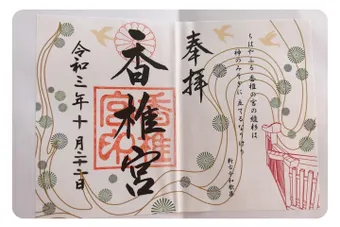 奉拝
ちはやふる香椎の宮の綾杉は
神のみそぎに立てるなりけり
新古今和歌集
香椎宮
香椎
宮印
令和三年十月二十二日